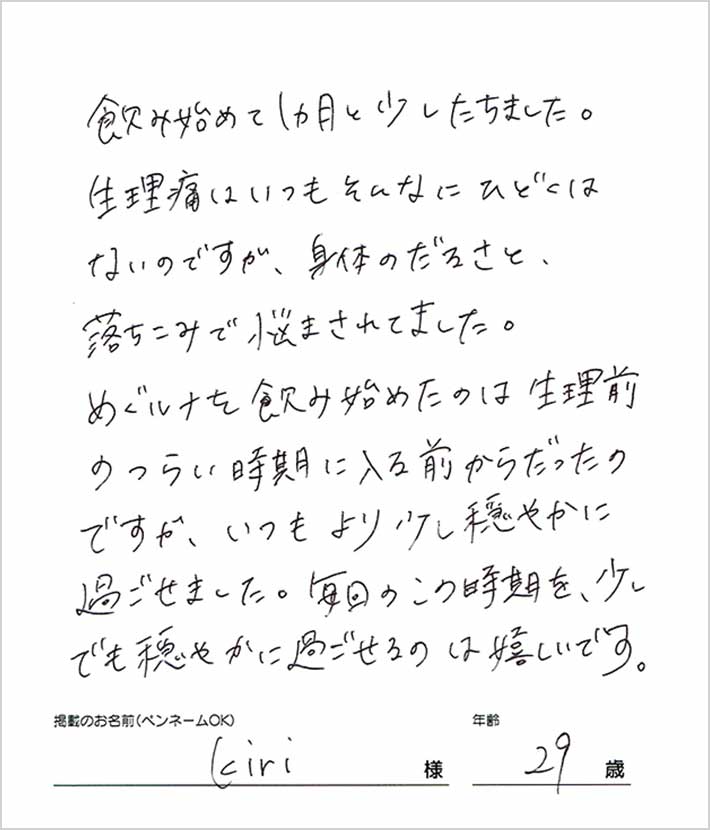 飲み始めて1カ月と少したちました。
生理痛はいつもそんなにひどくは
ないのですが、身体のだるさと、
落ちこみで悩まされてました。
めぐルナを飲み始めたのは生理前
のつらい時期に入る前からだったの
ですが、いつもより少し穏やかに
過ごせました。毎回のこの時期を、少し
でも穏やかに過ごせるのは嬉しいです。
掲載のお名前(ペンネームOK) 年齢
kiri 様 29 歳